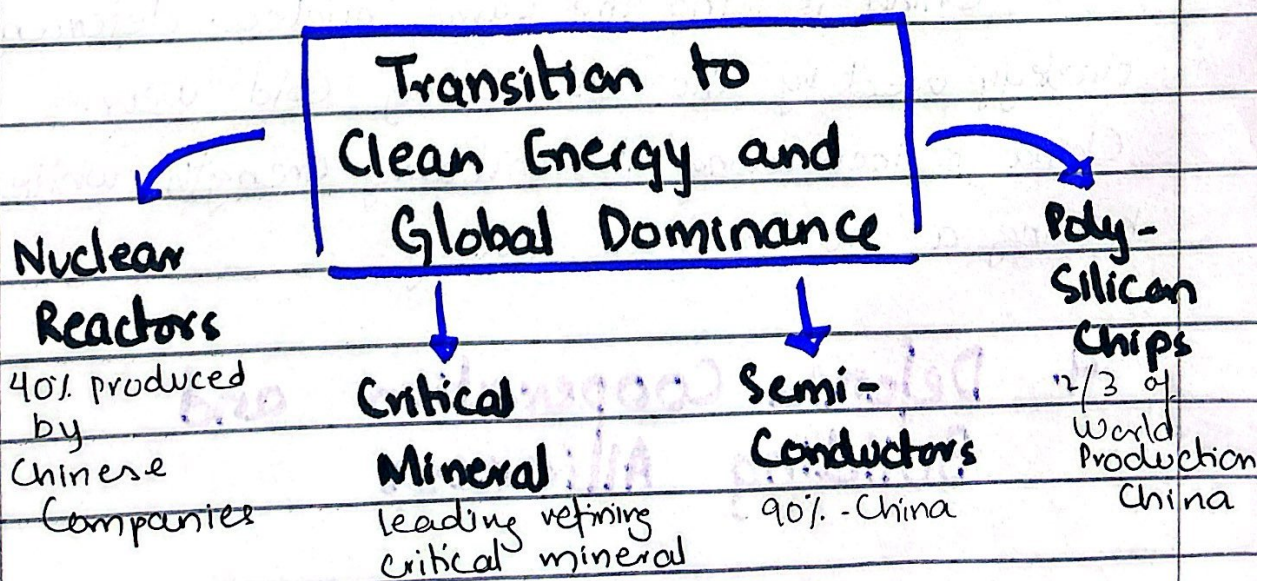 Transition to
Clean Energy and
Global Dominance
Nuclear
Reactors
40% produced
by
Chinese
Companies
Critical
Mineral
leading refining
critical mineral
Semi-
Conductors
90% - China
Poly-
Silicon
Chips
2/3 of
World
Production
China